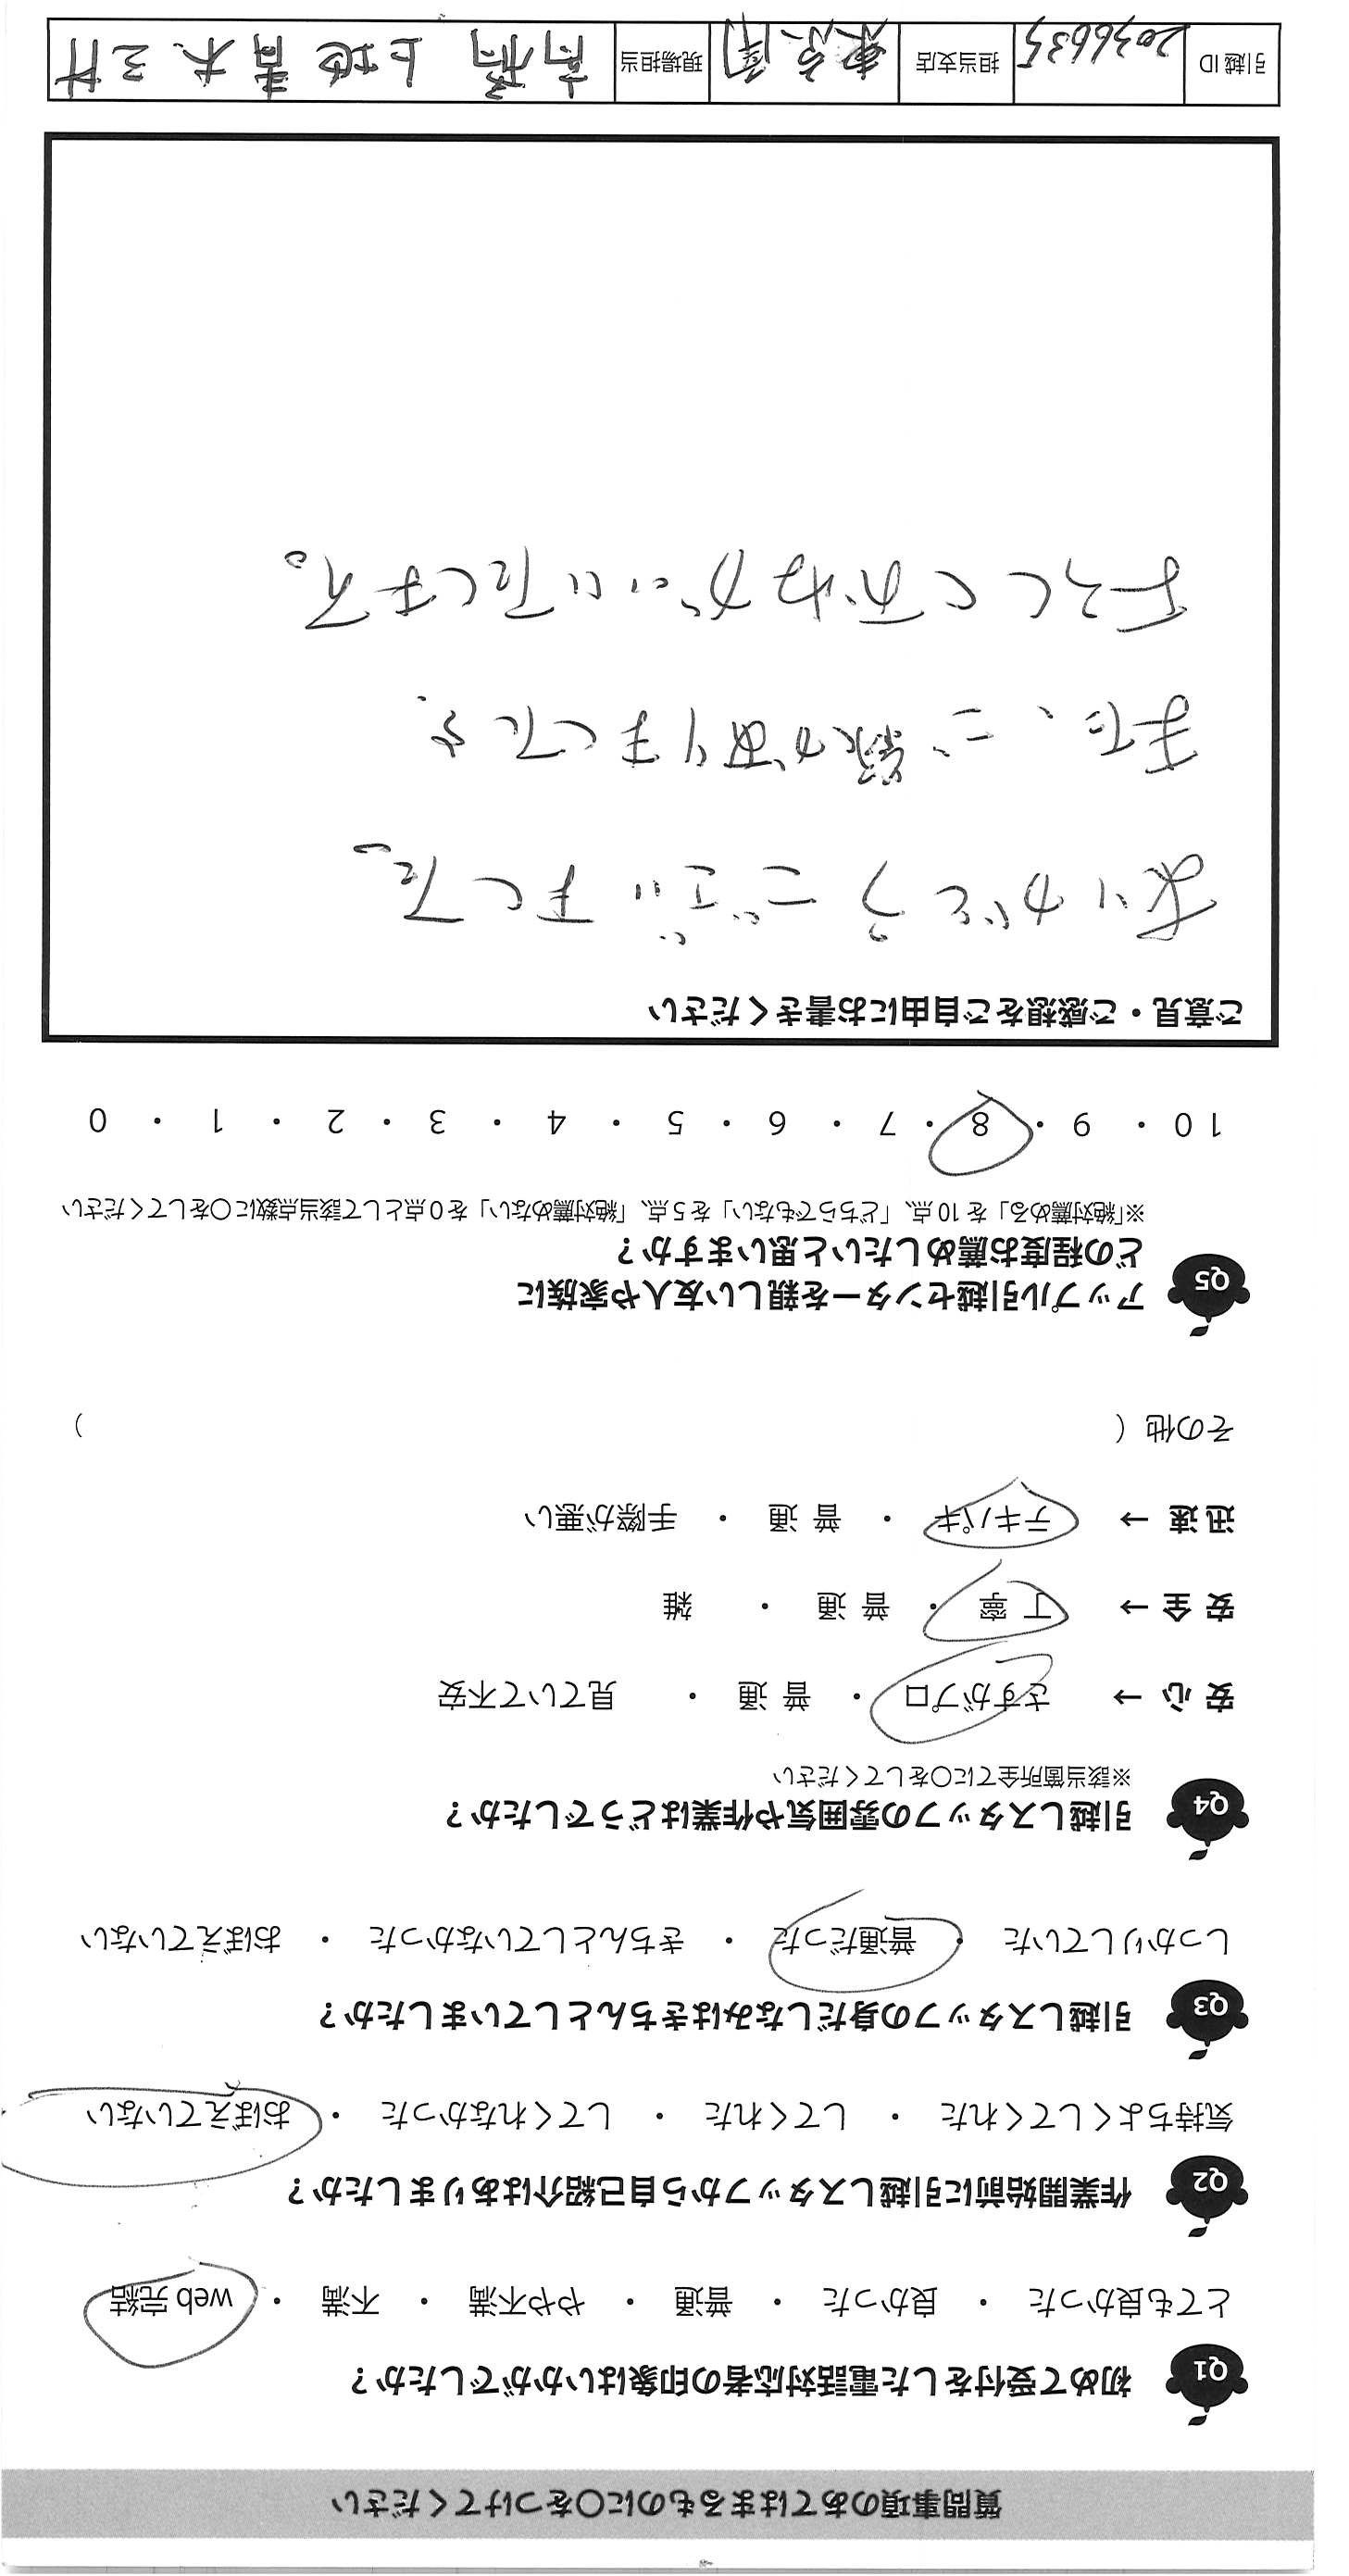 質問事項のあてはまるものに○をつけてください
Q1 初めて受付をした電話対応者の印象はいかがでしたか？
とても良かった ・ 良かった ・ 普通 ・ やや不満 ・ 不満 ・ web 完結
Q2 作業開始前に引越しスタッフから自己紹介はありましたか？
気持ちよくしてくれた ・ してくれた ・ してくれなかった ・ おぼえていない
Q3 引越しスタッフの身だしなみはきちんとしていましたか？
しっかりしていた ・ 普通だった ・ きちんとしていなかった ・ おぼえていない
Q4 引越しスタッフの雰囲気や作業はどうでしたか？
※該当箇所全てに○をしてください
安 心 → さすがプロ ・ 普 通 ・ 見ていて不安
安 全 → 丁 寧 ・ 普 通 ・ 雑
迅 速 → テキパキ ・ 普 通 ・ 手際が悪い
その他（ ）
Q5 アップル引越センターを親しい友人や家族に
どの程度お薦めしたいと思いますか？
※「絶対薦める」を 10 点、「どちらでもない」を 5 点、「絶対薦めない」を 0 点として該当点数に○をしてください
10 ・ 9 ・ 8 ・ 7 ・ 6 ・ 5 ・ 4 ・ 3 ・ 2 ・ 1 ・ 0
ご意見・ご感想をご自由にお書きください
ありがとうございました。
また、ご縁がありましたら、
よろしくおねがいいたします。
引越 ID 2036635 担当支店 東京南 現場担当 高橋 上地 青木 三村